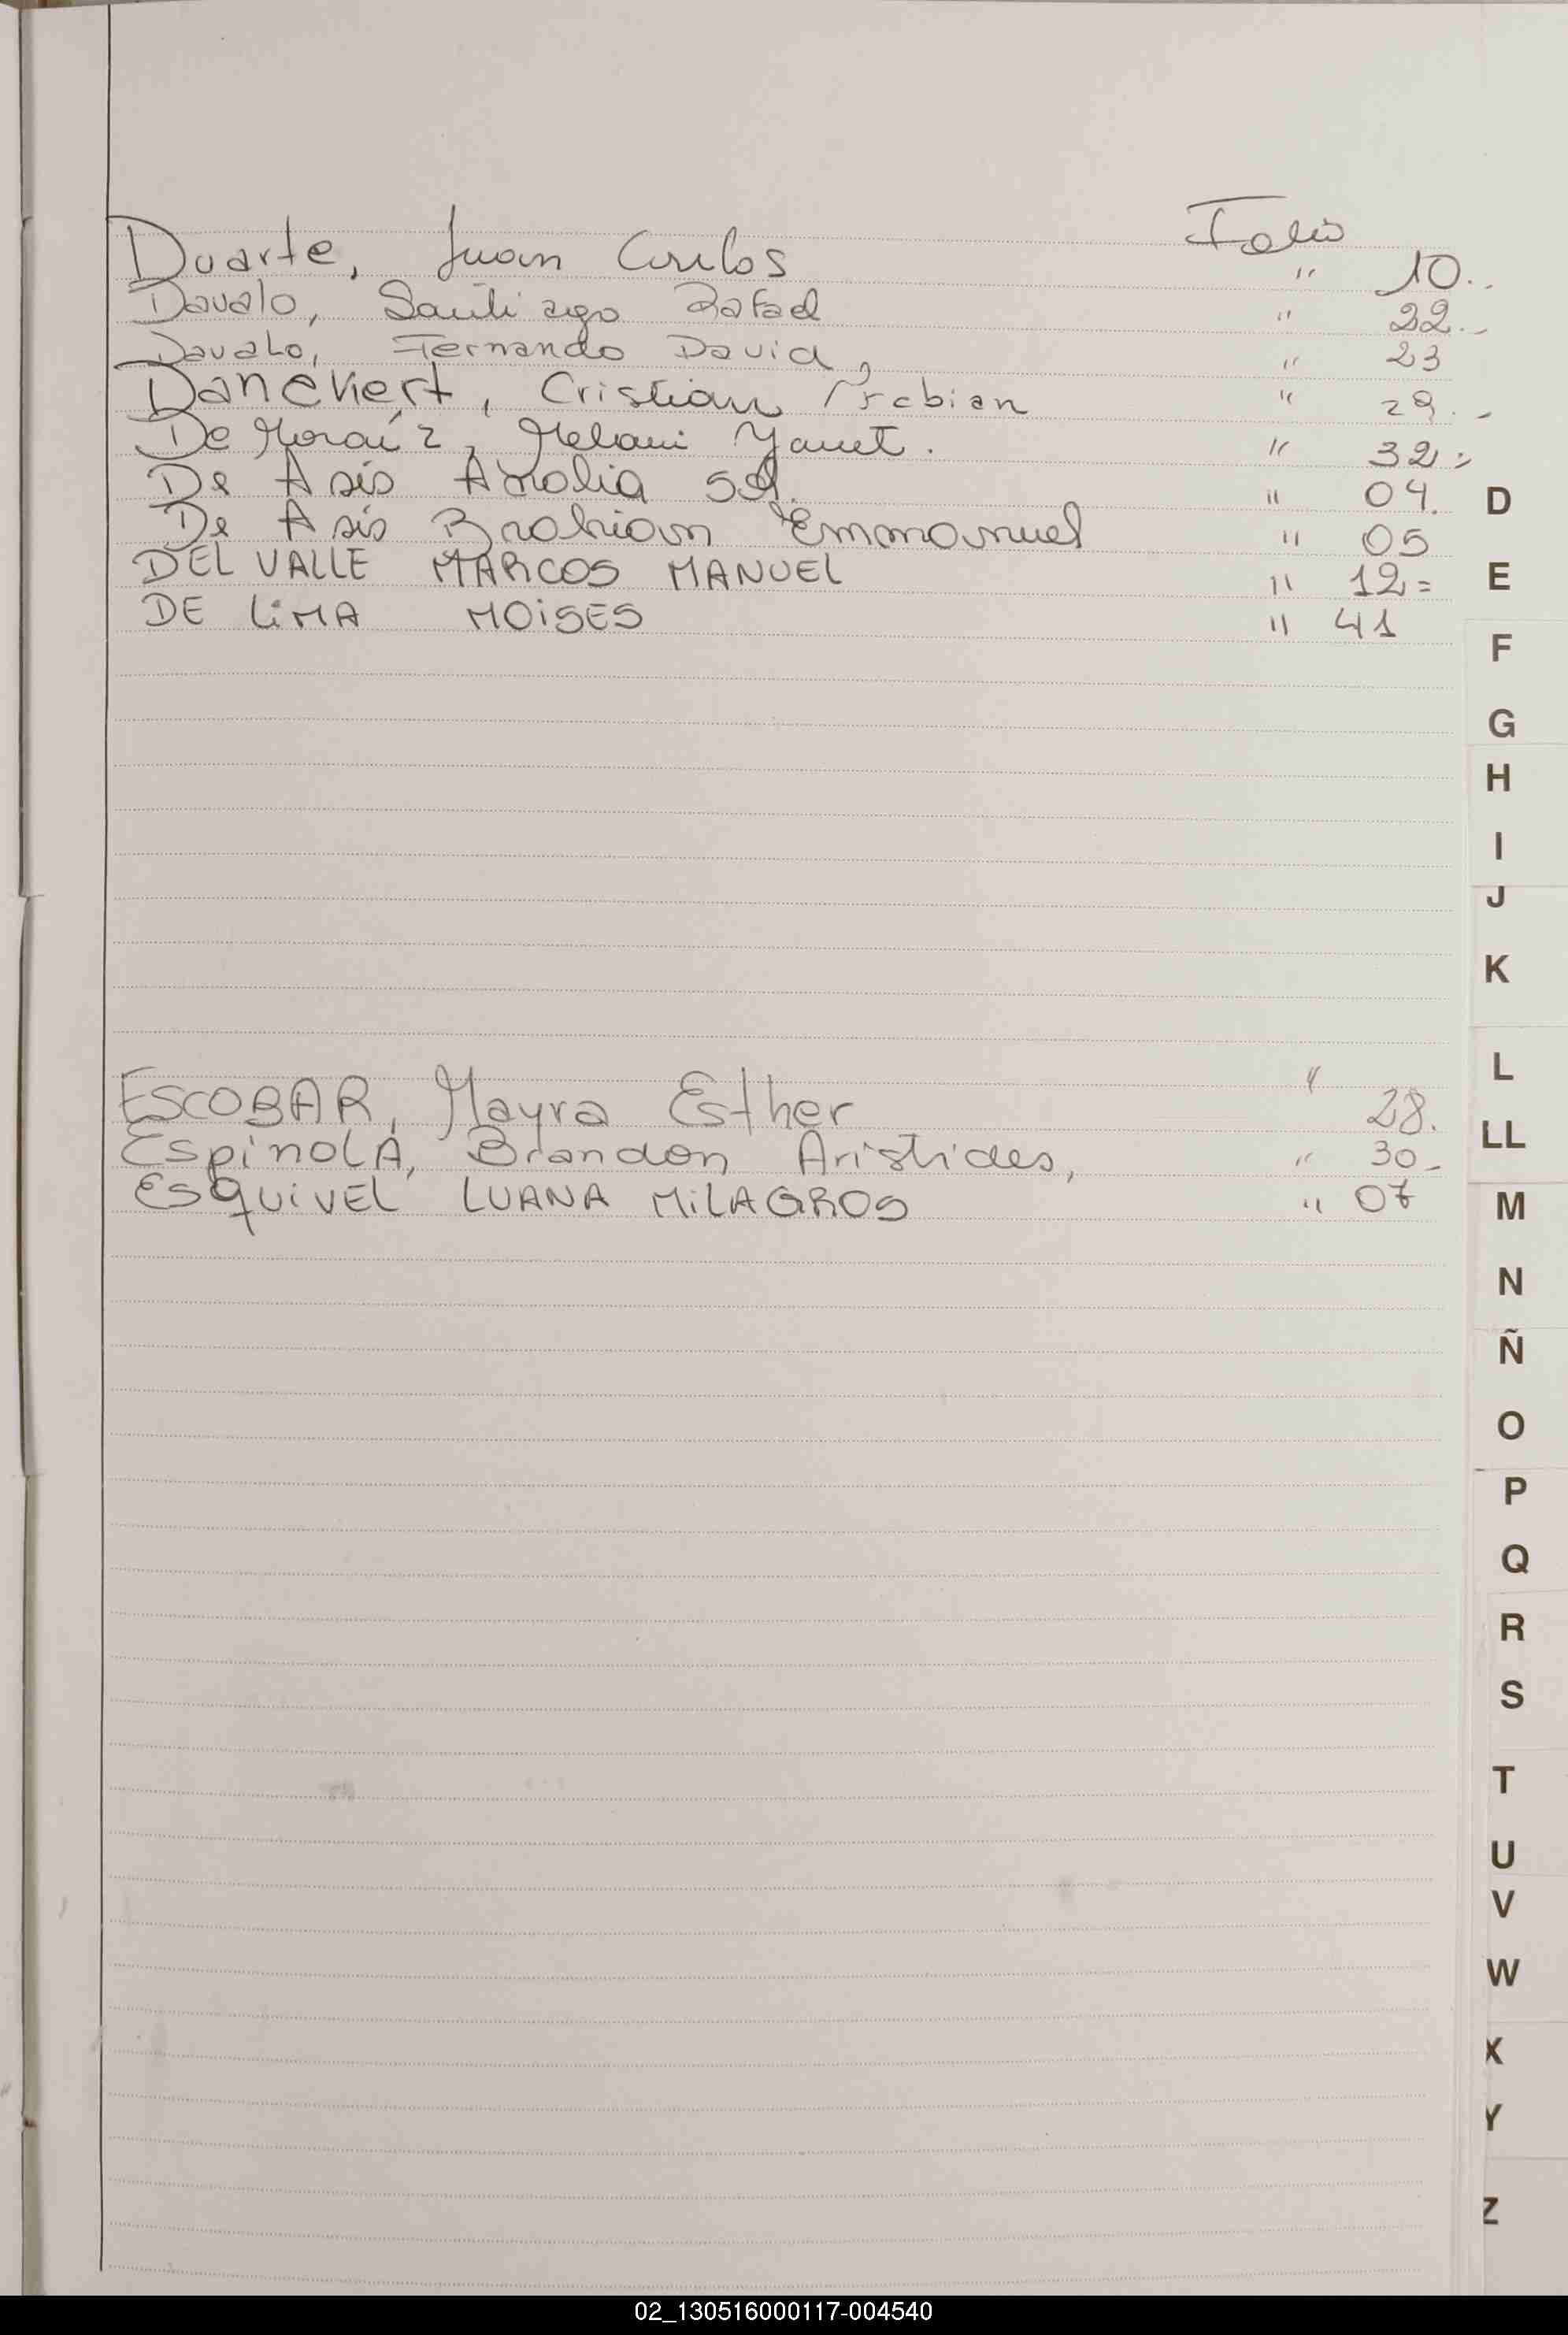 Folio
Duarte, Juan Carlos " 10..
Davalo, Santiago Rafael " 22.-
Davalo, Fernando David, " 23
Danékert, Cristian Fabian " 29.-
De Moraíz, Melani Yanet. " 32=
De Asis Analia SA. " 04.
De Asis Brahian Emmanuel " 05
DEL VALLE MARCOS MANUEL " 12=
DE LiMA MOiSES " 41
ESCOBAR, Mayra Esther " 28.
EspinoLA, Brandon Aristides, " 30-
ESQUiVEL LUANA MiLAGROS " 07
D
E
F
G
H
I
J
K
L
LL
M
N
Ñ
O
P
Q
R
S
T
U
V
W
X
Y
Z
02_130516000117-004540